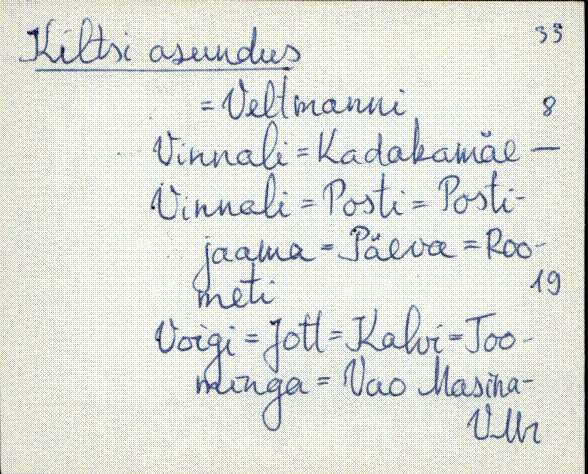 Kiltsi asundus 33
= Veltmanni 8
Vinnali = Kadakamäe —
Vinnali = Posti = Posti-
jaama = Päeva = Roo-
meti 19
Voigi = Jott = Kalvi = Too-
minga = Vao Masina-